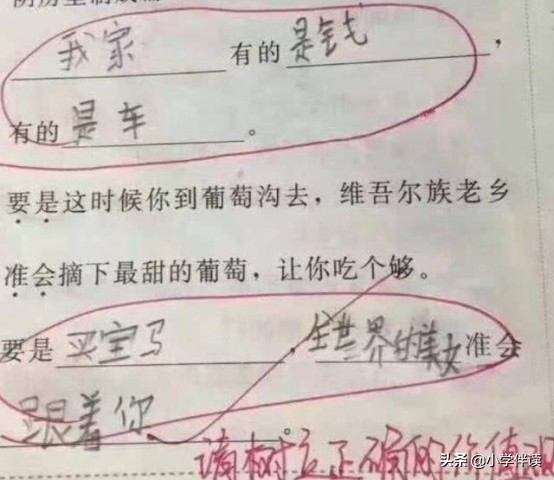 我家有的是钱，
有的是车。
要是这时候你到葡萄沟去，维吾尔族老乡
准会摘下最甜的葡萄，让你吃个够。
要是买宝马，全世界的美女准会
跟着你。
请树立正确的价值
头条 @小学伴读